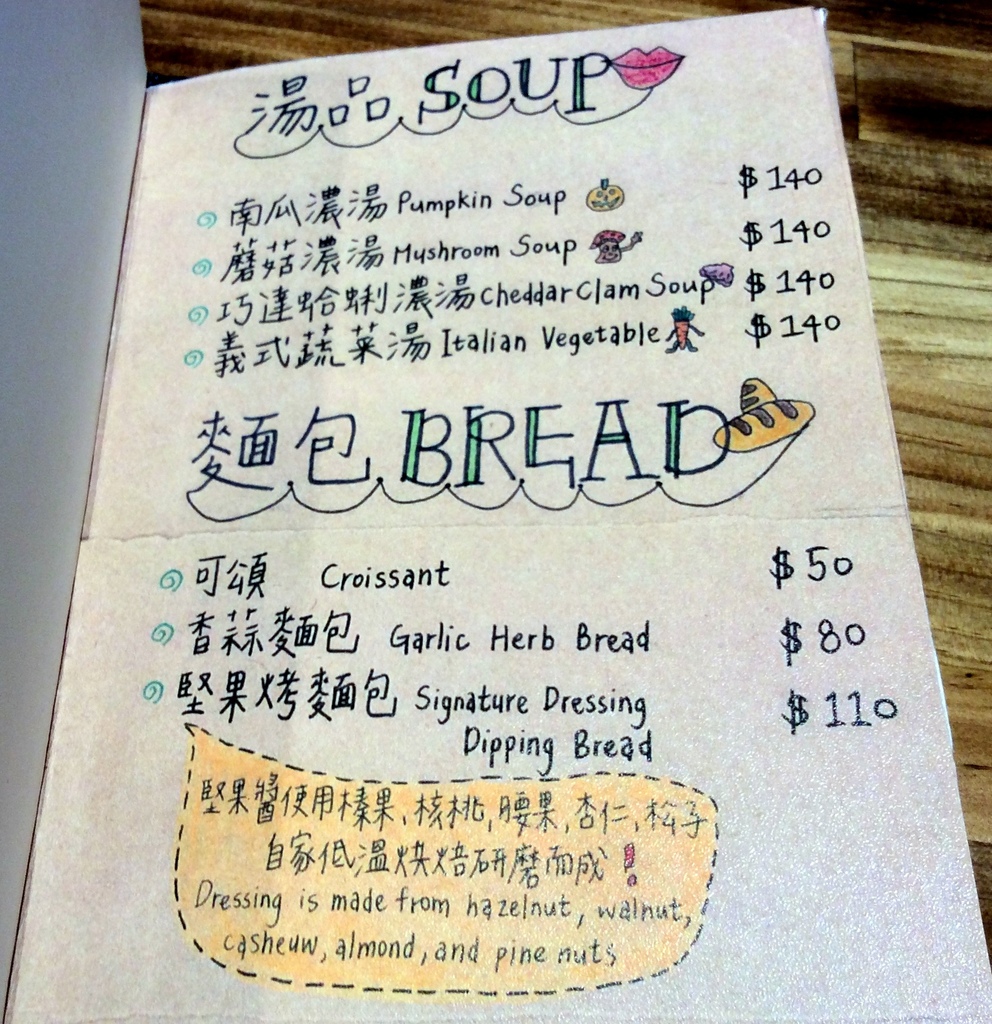 湯品 SOUP
南瓜濃湯 Pumpkin Soup $140
蘑菇濃湯 Mushroom Soup $140
巧達蛤蜊濃湯 Cheddar Clam Soup $140
義式蔬菜湯 Italian Vegetable $140
麵包 BREAD
可頌 Croissant $50
香蒜麵包 Garlic Herb Bread $80
堅果烤麵包 Signature Dressing $110
Dipping Bread
堅果醬使用榛果、核桃、腰果、杏仁、松子
自家低溫烘焙研磨而成！
Dressing is made from hazelnut, walnut,
casheuw, almond, and pine nuts